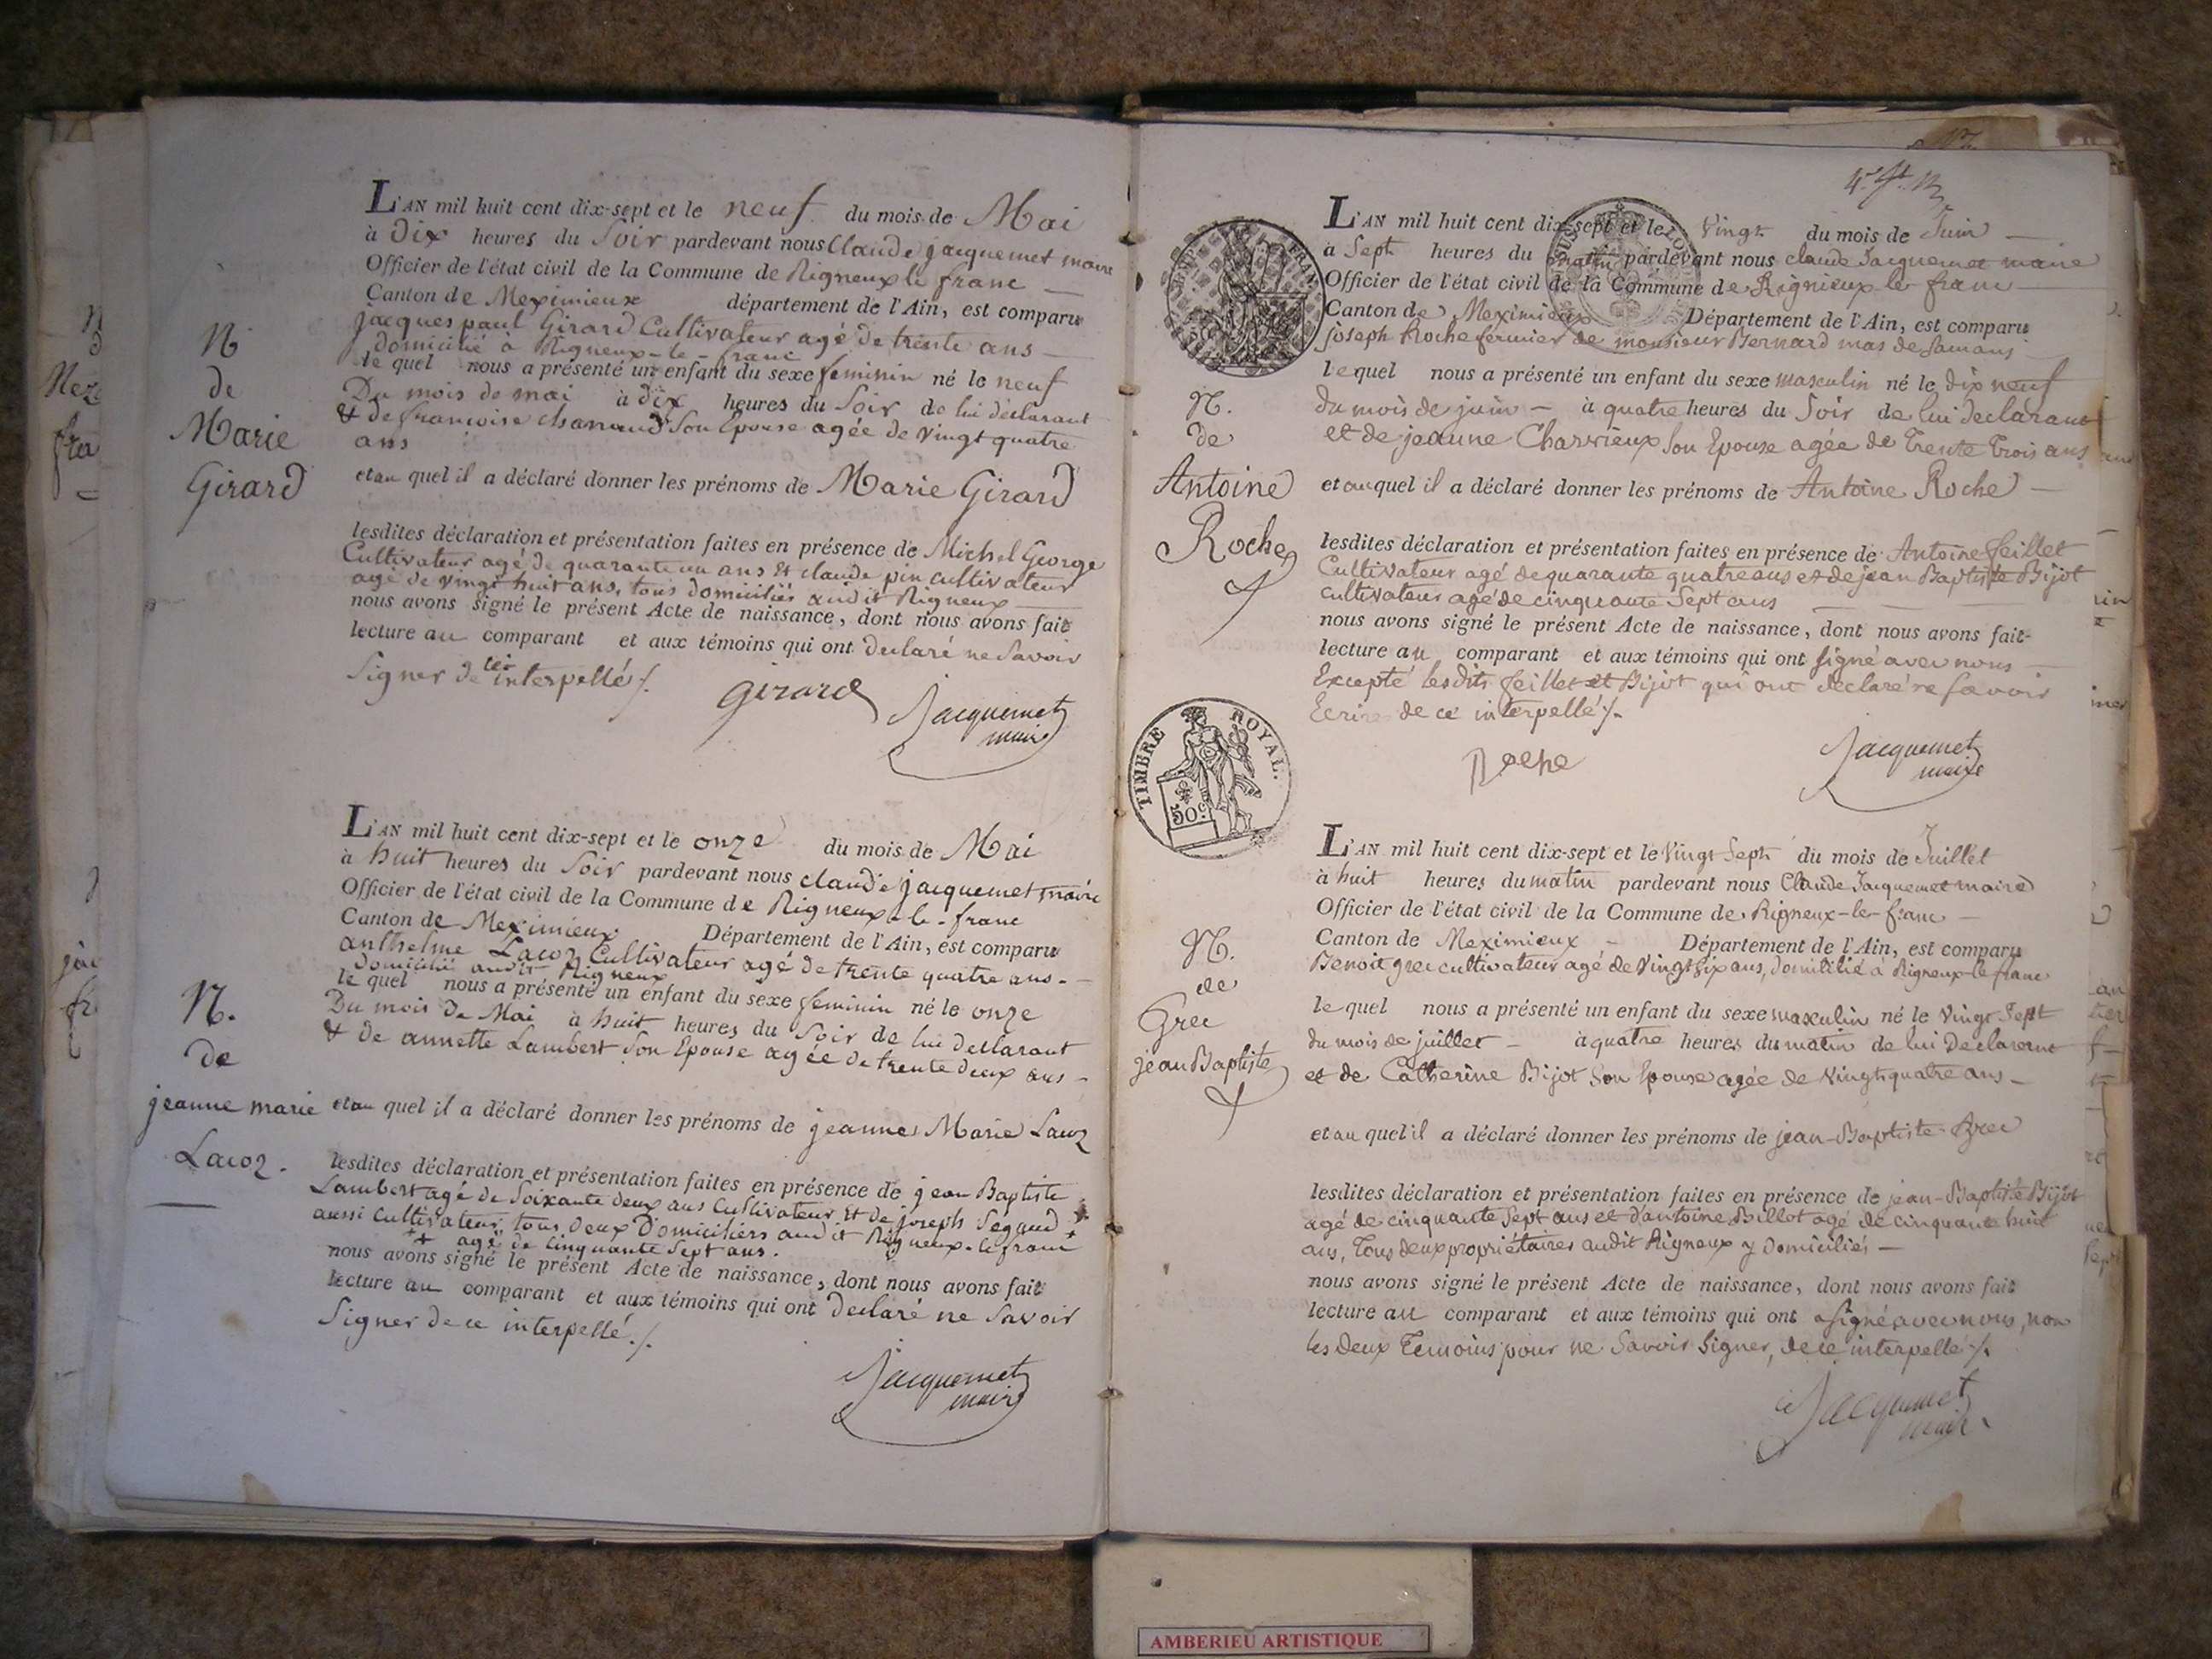 N
de
Marie
Girard
L'AN mil huit cent dix-sept et le neuf du mois de Mai
à Dix heures du Soir pardevant nous Claude jacquemet maire
Officier de l'état civil de la Commune de Rigneux le franc
Canton de Meximieux département de l'Ain, est comparu
jacques paul Girard Cultivateur agé de trente ans
domicilié à Rigneux-le-franc
le quel nous a présenté un enfant du sexe feminin né le neuf
Du mois de mai à dix heures du Soir de lui déclarant
& de francoise Son Epouse agée de vingt quatre
ans
et au quel il a déclaré donner les prénoms de Marie Girard
lesdites déclaration et présentation faites en présence de Michel George
Cultivateur agé de quarante un ans Et claude pin cultivateur
agé de vingt huit ans, tous domiciliés audit Rigneux
nous avons signé le présent Acte de naissance, dont nous avons fait
lecture au comparant et aux témoins qui ont declaré ne Savoir
Signer de interpellé ./.
girard Jacquemet
maire
N.
de
jeanne marie
Lacoz.
L'AN mil huit cent dix-sept et le onze du mois de Mai
à huit heures du Soir pardevant nous claude jacquemet maire
Officier de l'état civil de la Commune de Rigneux-le-franc
Canton de Meximieux Département de l'Ain, est comparu
anthelme Lacoz Cultivateur agé de trente quatre ans
domicilié audit Rigneux
le quel nous a présenté un enfant du sexe feminin né le onze
Du mois de Mai à huit heures du Soir de lui declarant
& de annette Lambert Son Epouse agée de trente deux ans
et au quel il a déclaré donner les prénoms de jeanne Marie Lacoz
lesdites déclaration et présentation faites en présence de jean Baptiste
Lambert agé de Soixante deux ans Cultivateur Et de joseph Segaud +
aussi Cultivateur, tous deux Domiciliers audit Rigneux-le franc
++ agé de cinquante Sept ans.
nous avons signé le présent Acte de naissance, dont nous avons fait
lecture au comparant et aux témoins qui ont declaré ne Savoir
Signer de ce interpellé ./.
Jacquemet
maire
TIMBRE ROYAL.
50c
N.
de
Antoine
Roche
L'AN mil huit cent dix-sept et le Vingt du mois de Juin
à Sept heures du matin pardevant nous claude Jacquemet maire
Officier de l'état civil de la Commune de Rignieux le franc
Canton de Meximieux Département de l'Ain, est comparu
joseph Roche fermier de monsieur Bernard mas de
le quel nous a présenté un enfant du sexe masculin né le dix neuf
du mois de juin à quatre heures du Soir de lui Declarant
et de jeanne Charvieux Son Epouse agée de Trente Trois ans
et au quel il a déclaré donner les prénoms de Antoine Roche
lesdites déclaration et présentation faites en présence de Antoine feillet
Cultivateur agé de quarante quatre ans et de jean Baptiste Bijot
cultivateur agé de cinquante Sept ans
nous avons signé le présent Acte de naissance, dont nous avons fait
lecture au comparant et aux témoins qui ont signé avec nous
Excepté lesdits feillet et Bijot qui ont declaré ne Savoir
Ecrire de ce interpellé ./.
Roche Jacquemet
maire
N.
de
Grec
jean Baptiste
L'AN mil huit cent dix-sept et le Vingt Sept du mois de Juillet
à huit heures du matin pardevant nous Claude Jacquemet maire
Officier de l'état civil de la Commune de Rigneux-le-franc
Canton de Meximieux Département de l'Ain, est comparu
Benoit grec cultivateur agé de Vingt six ans, domicilié à Rigneux-le-franc
le quel nous a présenté un enfant du sexe masculin né le Vingt Sept
du mois de juillet à quatre heures du matin de lui Declarent
et de Catherine Bijot Son Epouse agée de Vingt quatre ans
et au quel il a déclaré donner les prénoms de jean-Baptiste Grec
lesdites déclaration et présentation faites en présence de jean-Baptiste Bijot
agé de cinquante Sept ans et d'antoine Billot agé de cinquante huit
ans, Tous deux propriétaires audit Rigneux y domiciliés
nous avons signé le présent Acte de naissance, dont nous avons fait
lecture au comparant et aux témoins qui ont signé avec nous, non
les deux Temoins pour ne Savoir Signer, de ce interpellé ./.
Jacquemet
maire
AMBERIEU ARTISTIQUE